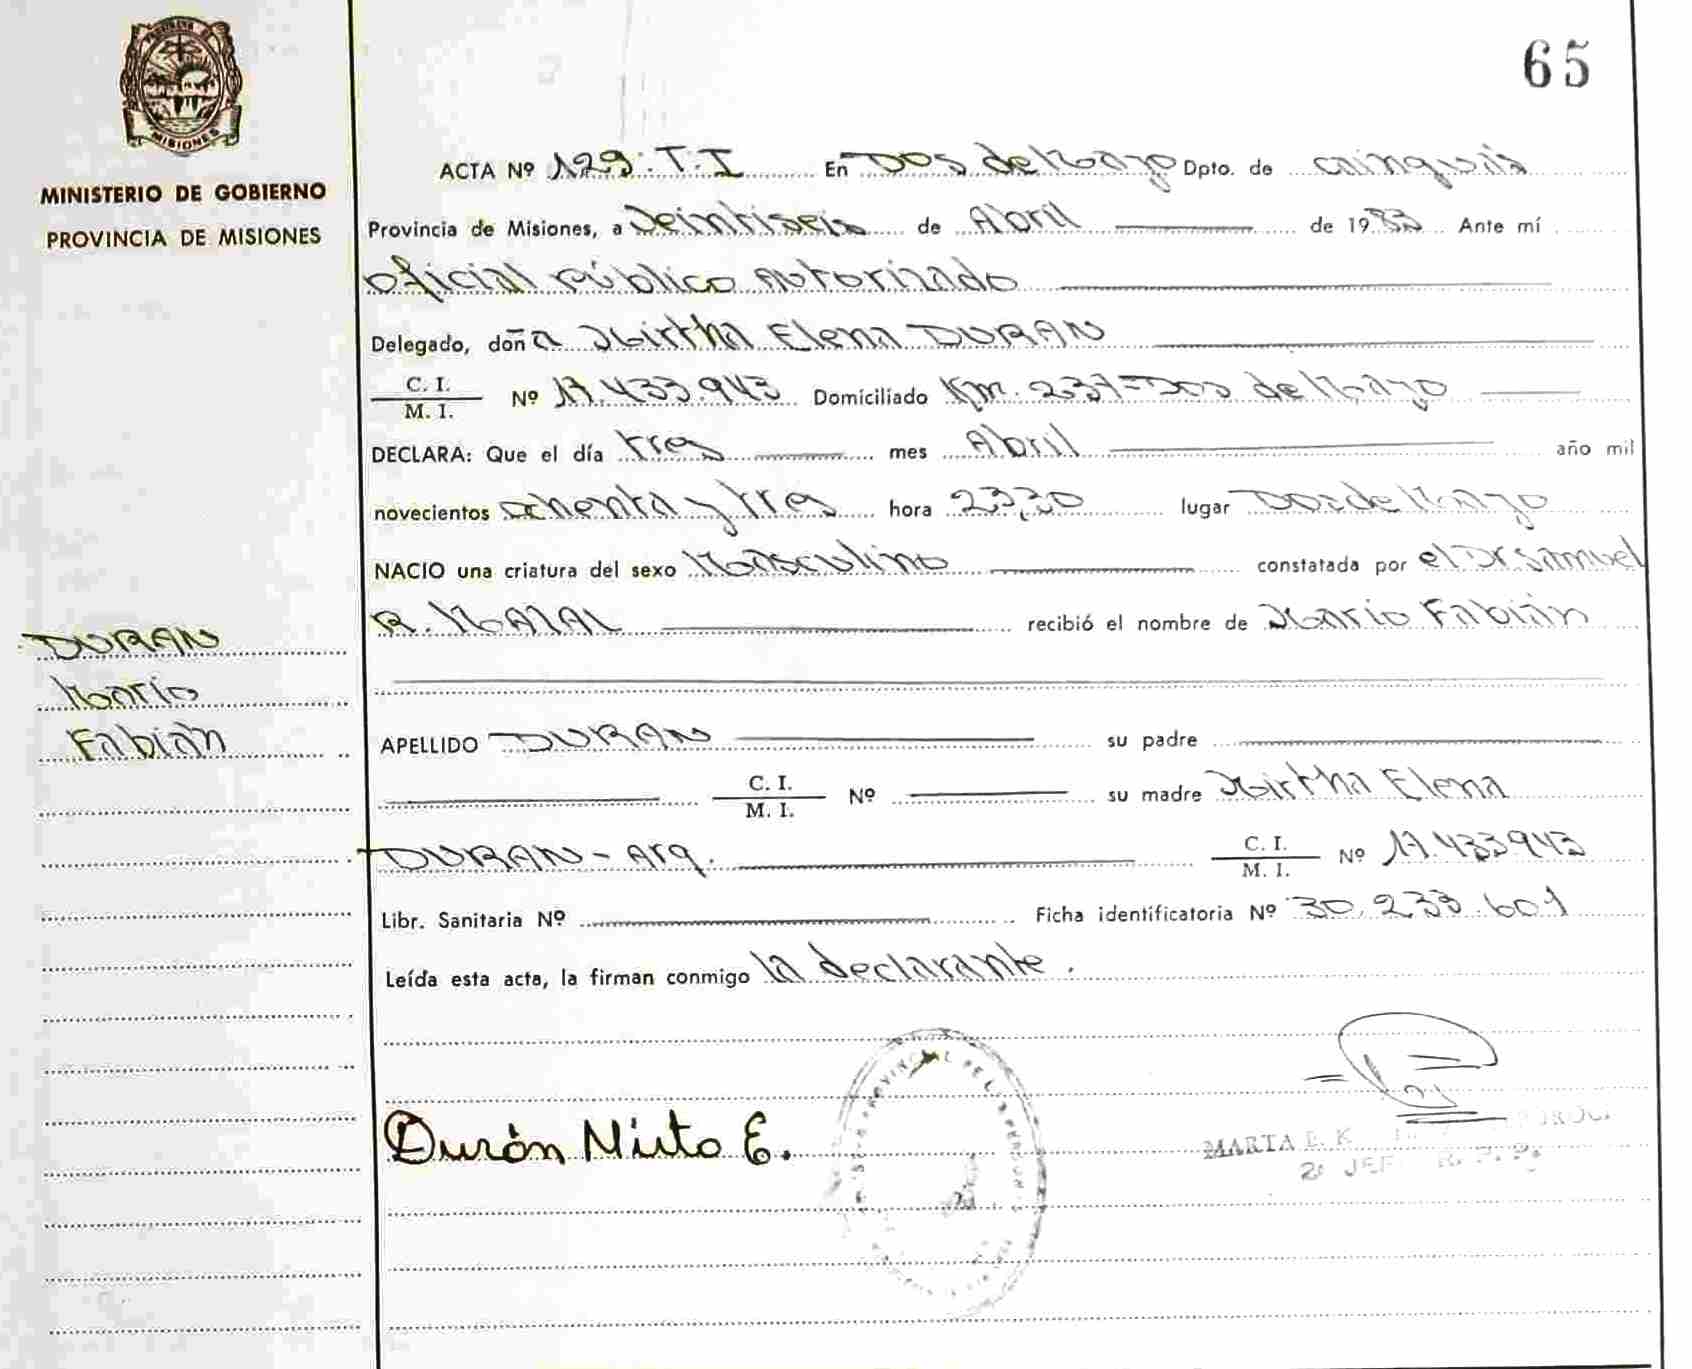 MISIONES
MINISTERIO DE GOBIERNO
PROVINCIA DE MISIONES
65
ACTA Nº 129. T. I En Dos de Mayo Dpto. de Cainguás
Provincia de Misiones, a Veintiseis de Abril de 1983 Ante mí
oficial público autorizado
Delegado, doña Mirtha Elena DURAN
C. I. / M. I. Nº 17.433.943 Domiciliado Km. 237 = Dos de Mayo
DECLARA: Que el día tres mes Abril año mil
novecientos ochenta y tres hora 23,30 lugar Dos de Mayo
NACIO una criatura del sexo Masculino constatada por el Dr Samuel
R. MAZAL recibió el nombre de Mario Fabián
DURAN
Mario
Fabián
APELLIDO DURAN su padre
C. I. / M. I. Nº su madre Mirtha Elena
DURAN - Arg. C. I. / M. I. Nº 17.433.943
Libr. Sanitaria Nº Ficha identificatoria Nº 30.233.601
Leída esta acta, la firman conmigo la declarante.
Durán Mirta E.
MARTA E. K.